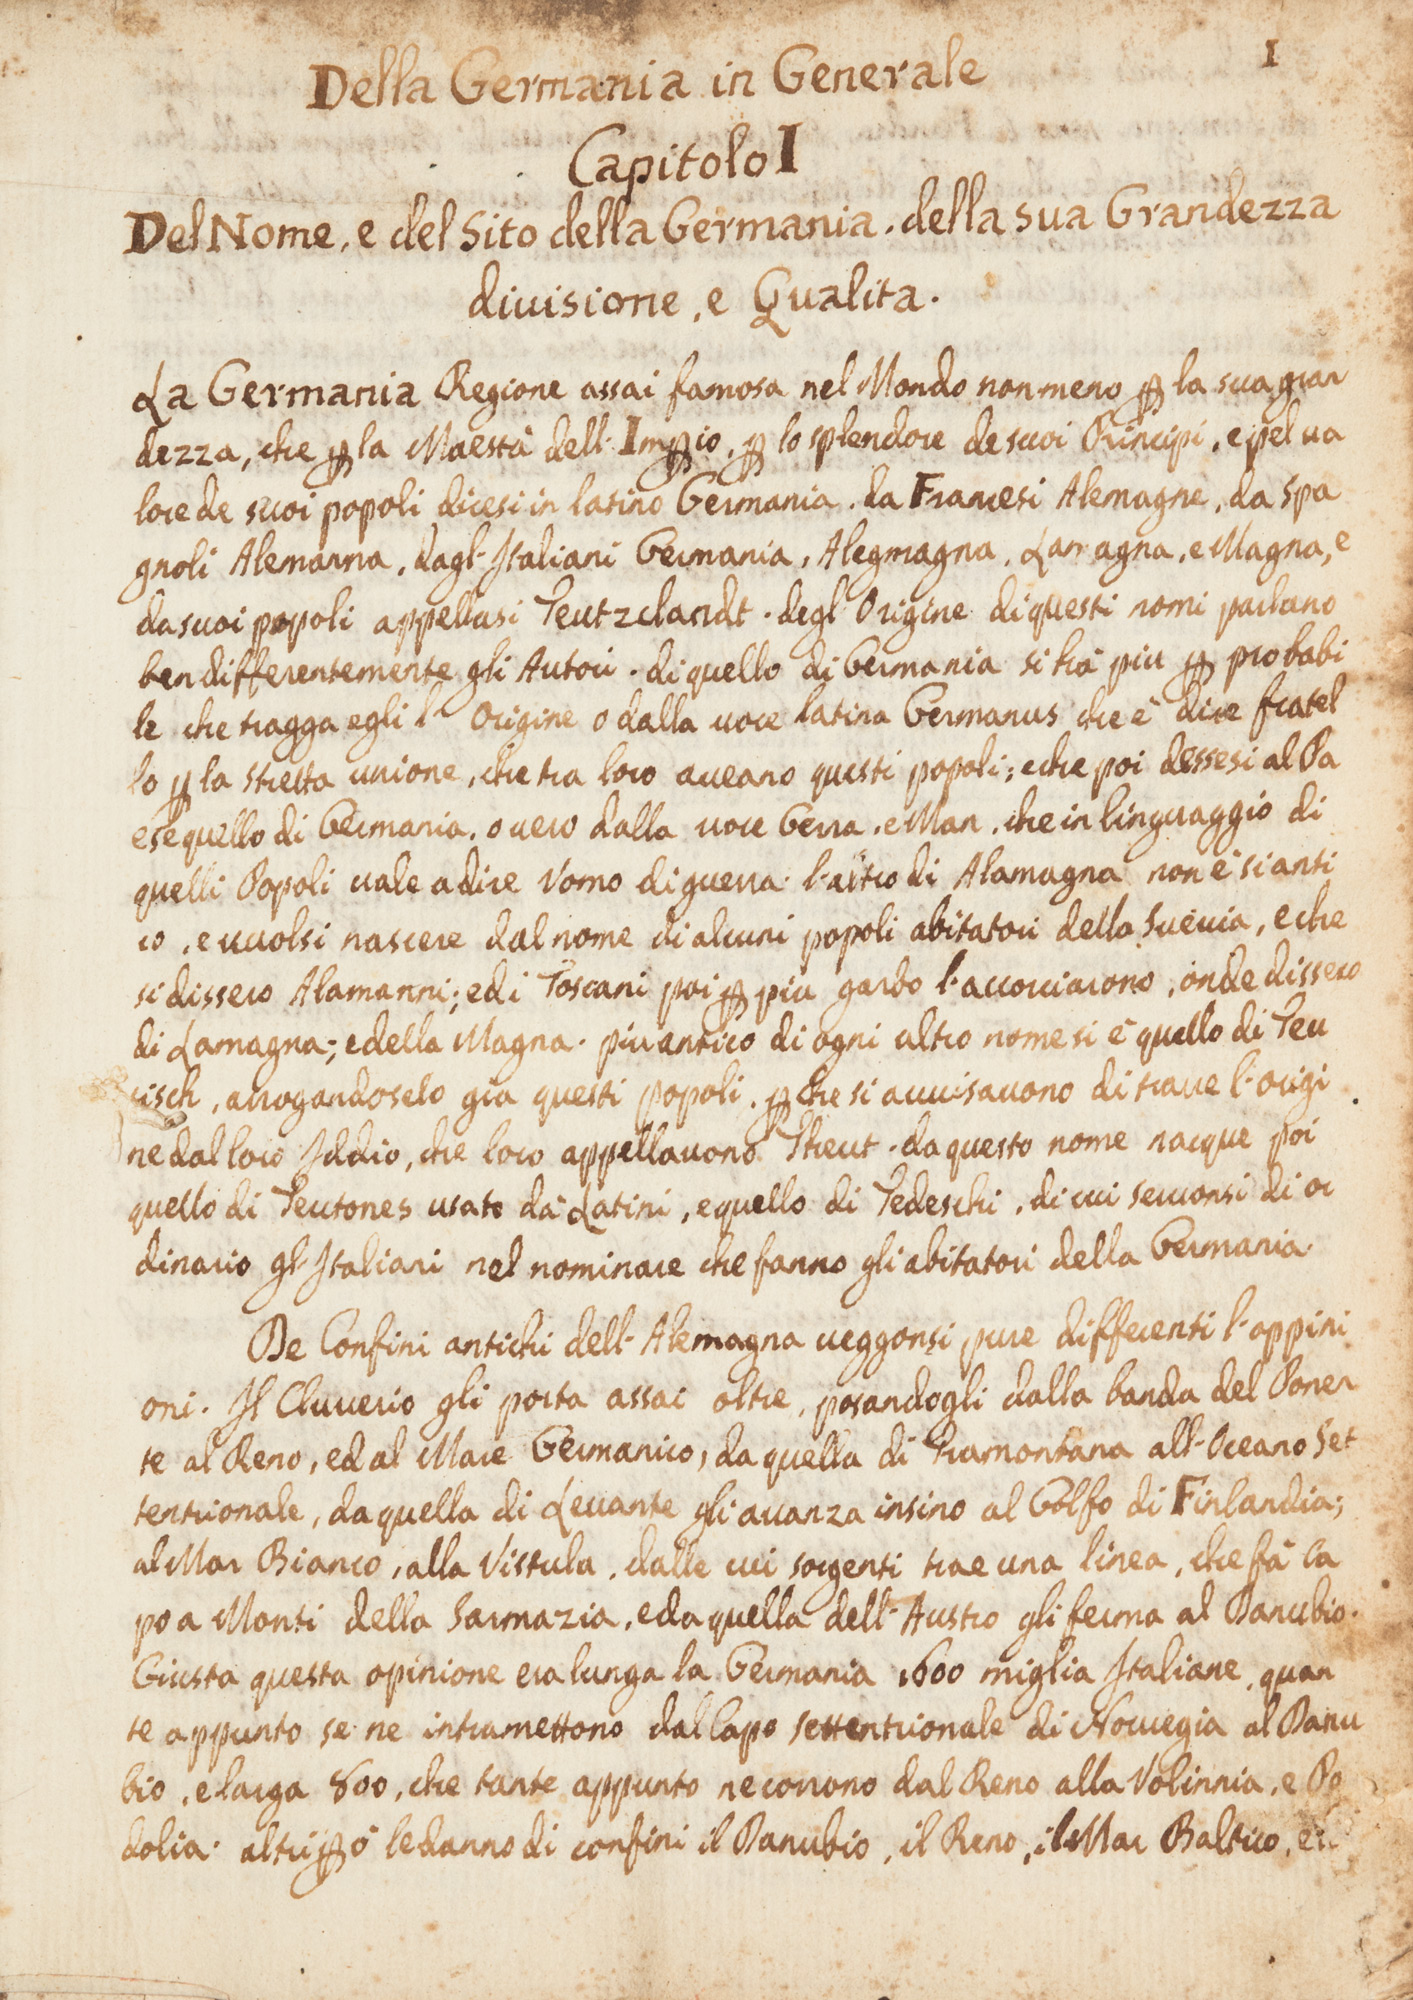 I
Della Germania in Generale
Capitolo I
Del Nome, e del Sito della Germania. della sua Grandezza
diuisione, e Qualita.
La Germania Regione assai famosa nel Mondo non meno ꝑ la sua gran
dezza, che ꝑ la Maestà dell' Imꝑio, ꝑ lo splendore de suoi Principi, e pel ua
lore de suoi popoli dicesi in latino Germania. da Francesi Alemagne, da Spa
gnoli Alemanna, dagl' Italiani Germania, Alegmagna, Lamagna, e Magna, e
da suoi popoli appellasi Teutzclandt. degl' Origine di questi nomi parlano
ben differentemente gli Autori. di quello di Germania si hà piu ꝑ probabi
le che tragga egli l' Origine o dalla uoce latina Germanus che è dire fratel
lo ꝑ la stretta unione, che tra loro aueano questi popoli; e che poi dessesi al Pa
ese quello di Germania. o uero dalla uoce Gerra, e Man, che in linguaggio di
quelli Popoli uale a dire Vomo di guerra. l' altro di Alamagna non è si anti
co, e uuolsi nascere dal nome di alcuni popoli abitatori della Sueuia, e che
si dissero Alamanni; ed i Toscani poi ꝑ piu garbo l' accorciarono, onde dissero
di Lamagna; e della Magna. piu antico di ogni altro nome si è quello di Teu
cisch, arrogandoselo gia questi popoli, ꝑ che si auuisauono di trarre l' origi
ne dal loro Iddio, che loro appellauono Theut. da questo nome nacque poi
quello di Teutones usato dà Latini, e quello di Tedeschi, di cui seruonsi di or
dinario gl' Italiani nel nominare che fanno gli abitatori della Germania.
De Confini antichi dell' Alemagna ueggonsi pure differenti l' oppini
oni. Il Cluuerio gli porta assai oltre, posandogli dalla banda del Ponen
te al Reno, ed al Mare Germanico, da quella di Tramontana all' Oceano Set
tentrionale, da quella di Leuante gli auanza insino al Golfo di Finlandia;
al Mar Bianco, alla Vistula, dalle cui sorgenti trae una linea, che fà ca
po a Monti della Sarmazia, e da quella dell' Austro gli ferma al Danubio.
Giusta questa opinione era lunga la Germania 1600 miglia Italiane, quan
te appunto se ne intramettono dal Capo settentrionale di Noruegia al Danu
bio, e larga 800, che tante appunto ne corrono dal Reno alla Volinnia, e Po
dolia. altri ꝑò le danno di confini il Danubio, il Reno, il Mar Baltico, e